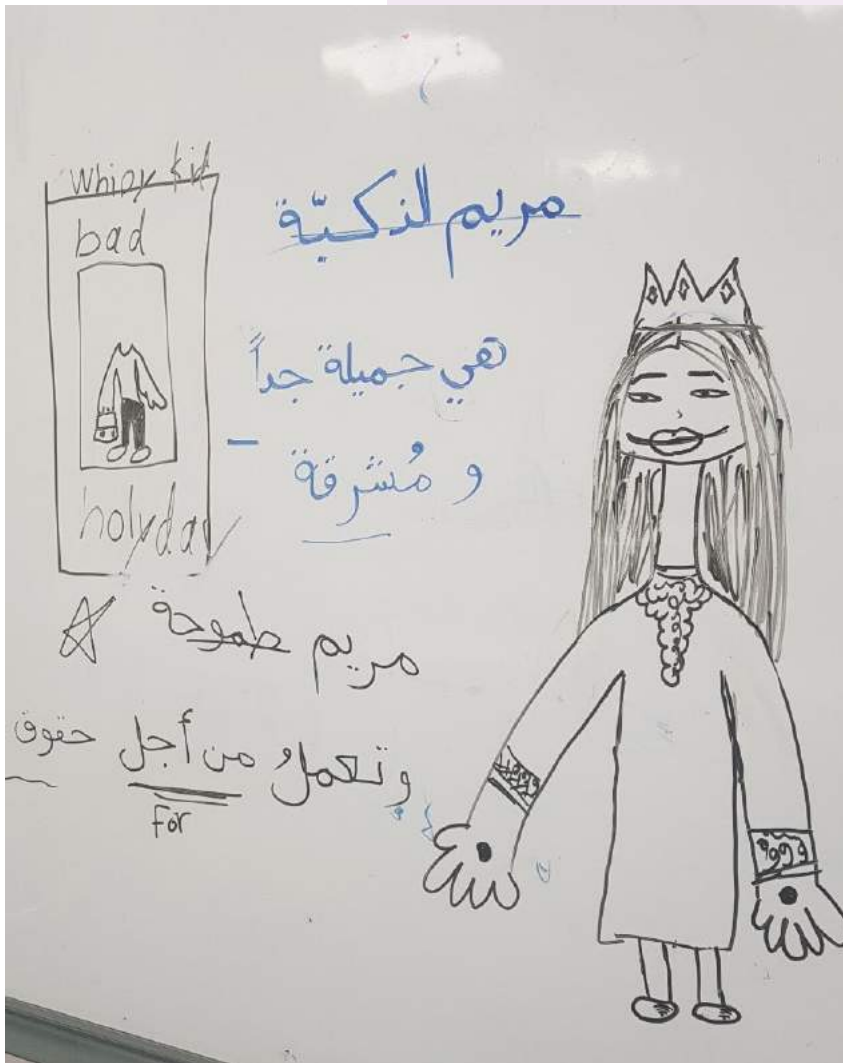 whipy kid
bad
holyday
مريم الذكيّة
هي جميلة جداً
و مُشرقة -
مريم طموحة
وتعملُ من أجل حقوق
For